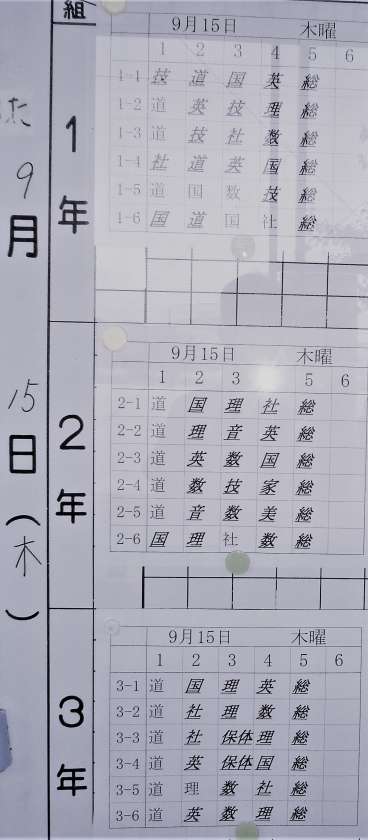 組
9月15日(木)
1年
9月15日 木曜
1 2 3 4 5 6
1-1 技 道 国 英 総
1-2 道 英 技 理 総
1-3 道 技 社 数 総
1-4 社 道 英 国 総
1-5 道 国 数 技 総
1-6 国 道 国 社 総
2年
9月15日 木曜
1 2 3 5 6
2-1 道 国 理 社 総
2-2 道 理 音 英 総
2-3 道 英 数 国 総
2-4 道 数 技 家 総
2-5 道 音 数 美 総
2-6 国 理 社 数 総
3年
9月15日 木曜
1 2 3 4 5 6
3-1 道 国 理 英 総
3-2 道 社 理 数 総
3-3 道 社 保体 理 総
3-4 道 英 保体 国 総
3-5 道 理 数 社 総
3-6 道 英 数 理 総